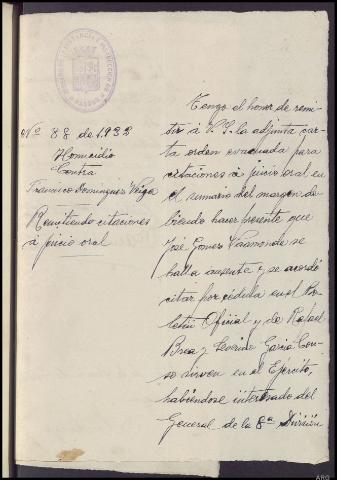 Nº 88 de 1932
Homicidio
Contra
Francisco Dominguez Veiga
Remitiendo citaciones
á juicio oral
Tengo el honor de remi-
tir á V.S. la adjunta car-
ta orden evacuada para
citaciones á juicio oral en
el sumario del margen de-
biendo hacer presente que
José Gomez Vaamonde se
halla ausente y se acordó
citar por cédula en el Bo-
letin Oficial y de Rafael
Brea y Severino Garcia
so sirven en el Ejército,
habiéndose interesado del
General de la 8ª División